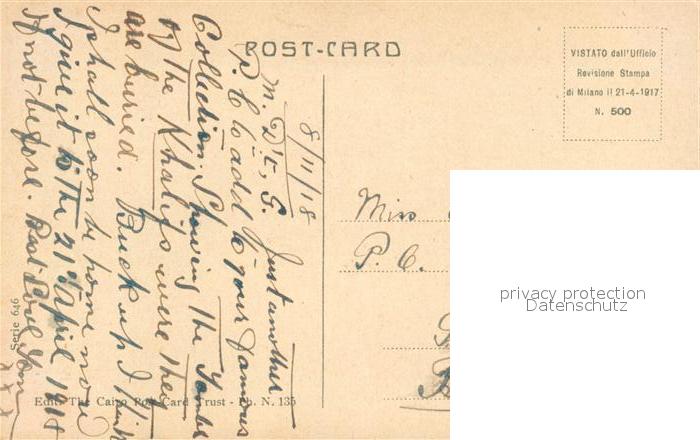 POST-CARD
VISTATO dall'Ufficio
Revisione Stampa
di Milano il 21-4-1917
N. 500
8/11/18
M. Just another
P.C. to add to your famous
Collection. Showing the Tombs
of the Khalifs were they
are buried. Buck up I think
I shall soon be home now
I give it to the 21st april 1918
if not before. Best Love
x x x
Miss
P. C.
privacy protection
Datenschutz
Serie 646
Edit. The Cairo Post-Card Trust - Ph. N. 135